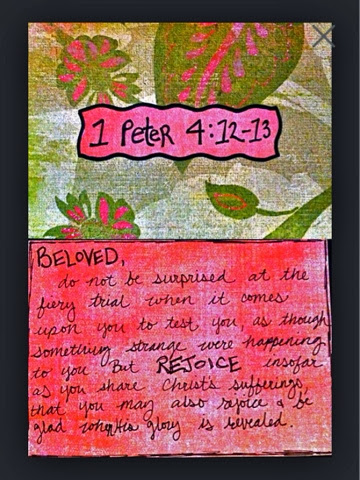 1 Peter 4:12-13
BELOVED,
do not be surprised at the
fiery trial when it comes
upon you to test you, as though
something strange were happening
to you But REJOICE insofar
as you share Christ's sufferings,
that you may also rejoice & be
glad when His glory is revealed.